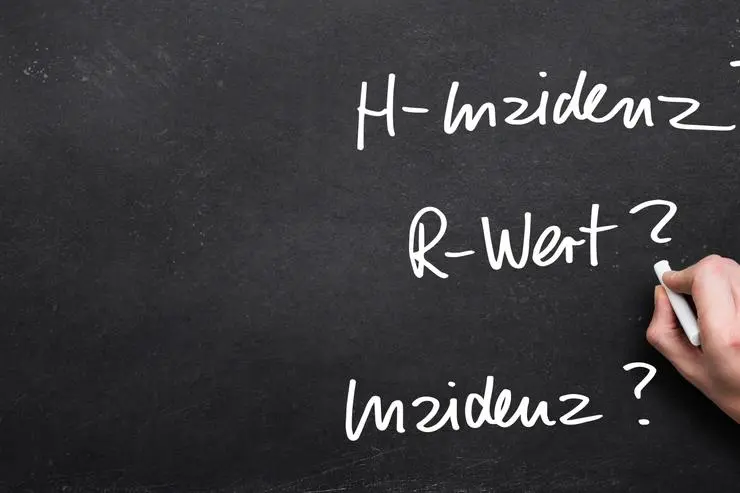 H-Inzidenz
R-Wert?
Inzidenz?